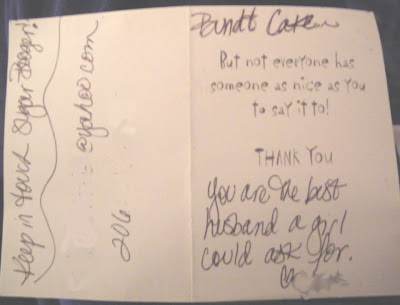 Keep in touch Sugar Booger!
@yahoo.com
206
Bundt Cake
But not everyone has
someone as nice as you
to say it to!
THANK YOU
You are the best
husband a girl
could ask for.